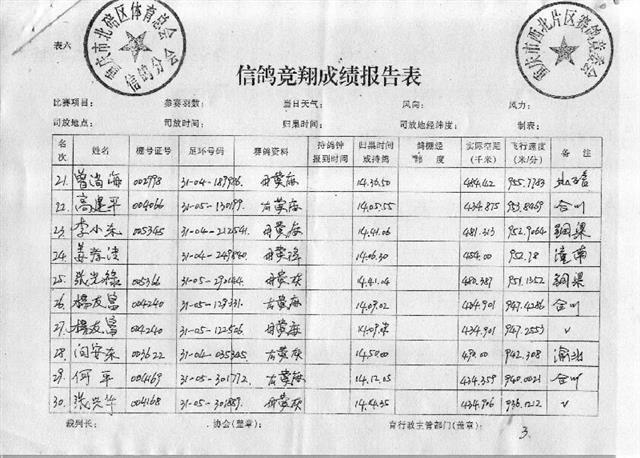 重庆市北碚区体育总会
信鸽分会
重庆市西北片区赛鸽总委会
表六
信鸽竞翔成绩报告表
比赛项目: 参赛羽数: 当日天气: 风向: 风力:
司放地点: 司放时间: 归巢时间: 司放地经纬度: 制表:
名次 姓名 棚号证号 足环号码 赛鸽资料 持鸽钟报到时间 归巢时间或持鸽 鸽棚经纬度 实际空距(千米) 飞行速度(米/分) 备注
21. 002998 14.36.50 484.42
22. 高建平 004066 31-05-130199 14.05.55 434.875 953.8469 合川
23. 李小东 005345 31-04-212541 14.41.06 481.313 952.9064 铜梁
24. 31-04-249840 14.06.30 454.00 952.78 潼南
25. 005366 31-05-290144 14.41.04 480.387 951.1352 铜梁
26. 杨友富 004240 31-05-129331 14.09.02 434.901 947.4236 合川
27. 杨友富 004240 31-05-122506 434.901 947.2553 v
28. 向安东 003622 31-04-035345 14.50.00 490.00 942.308 渝北
29. 何平 004169 31-05-301772 14.12.05 434.359 940.0021 合川
30. 张兴华 004168 31-05-301889 14.14.35 434.906 936.1212 v
裁判长: 协会(盖章): 育行政主管部门(盖章):
3.